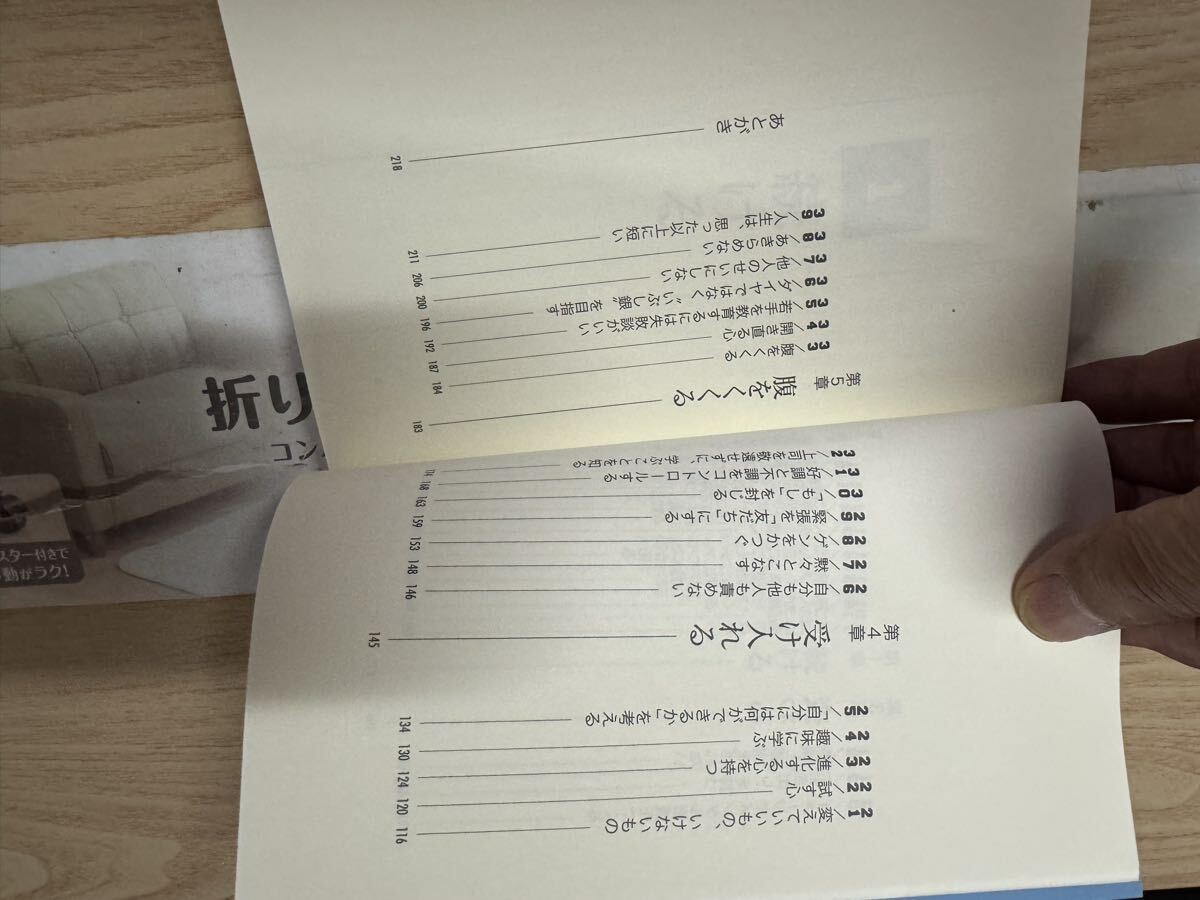 21/変えていいもの、いけないもの 116
22/試す心 120
23/進化する心を持つ 124
24/趣味に学ぶ 130
25/「自分には何ができるか」を考える 134
第4章 受け入れる 145
26/自分も他人も責めない 146
27/黙々とこなす 148
28/ゲンをかつぐ 153
29/緊張を「友だち」にする 159
30/「もし」を封じる 163
31/好調と不調をコントロールする 168
32/上司を敬遠せずに、学ぶことを知る 174
第5章 腹をくくる 183
33/腹をくくる 184
34/開き直る心 187
35/若手を教育するには失敗談がいい 192
36/ダイヤではなく〝いぶし銀〟を目指す 196
37/他人のせいにしない 200
38/あきらめない 206
39/人生は、思った以上に短い 211
あとがき 218
折り
コン
スター付きで
動がラク!